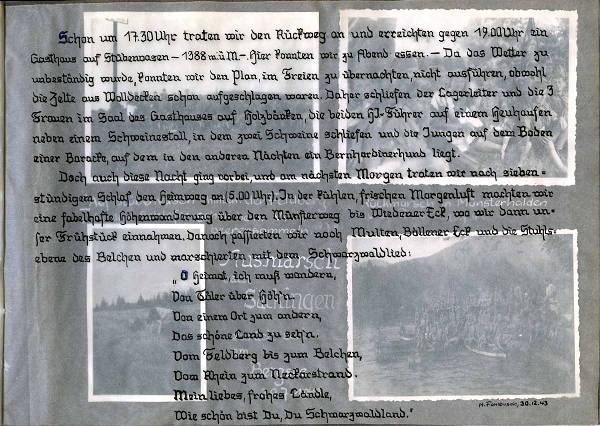 Schon um 17.30 Uhr traten wir den Rückweg an und erreichten gegen 19.00 Uhr ein
Gasthaus auf Stübenwasen – 1388 m.ü.M –. Hier konnten wir zu Abend essen. – Da das Wetter zu
unbeständig wurde, konnten wir den Plan, im Freien zu übernachten, nicht ausführen, obwohl
die Zelte aus Wolldecken schon aufgeschlagen waren. Daher schliefen der Lagerleiter und die 3
Frauen im Saal des Gasthauses auf Holzbänken, die beiden HJ-Führer auf einem Heuhaufen
neben einem Schweinestall, in dem zwei Schweine schliefen und die Jungen auf dem Boden
einer Baracke, auf dem in den anderen Nächten ein Bernhardinerhund liegt.
Doch auch diese Nacht ging vorbei, und am nächsten Morgen traten wir nach sieben-
stündigem Schlaf den Heimweg an (6.00 Uhr). In der kühlen, frischen Morgenluft machten wir
eine fabelhafte Höhenwanderung über den Münsterweg bis Wiedener Eck, wo wir dann un-
ser Frühstück einnahmen. Danach passierten wir noch Multen, Böllener Eck und die Stuhls-
ebene des Belchen und marschierten mit dem Schwarzwaldlied:
„O Heimat, ich muß wandern,
Von Täler über Höh'n.
Von einem Ort zum andern,
Das schöne Land zu seh'n.
Vom Feldberg bis zum Belchen,
Vom Rhein zum Neckarstrand.
Mein liebes, frohes Ländle,
Wie schön bist Du, Du Schwarzwaldland."
30.12.43